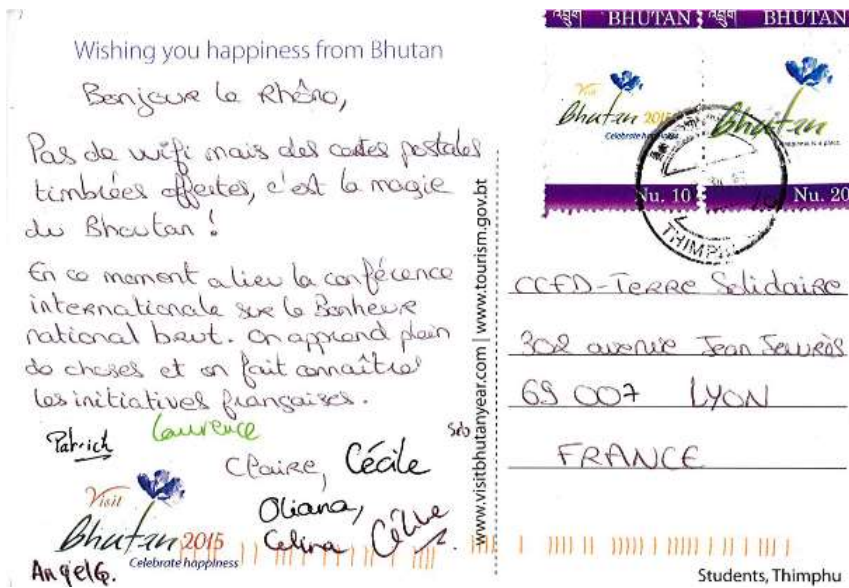 Wishing you happiness from Bhutan
Bonjour le Rhône,
Pas de wifi mais des cartes postales
timbrées offertes, c'est la magie
du Bhoutan !
En ce moment a lieu la conférence
internationale sur le Bonheur
national brut. On apprend plein
de choses et on fait connaître
les initiatives françaises.
Patrick
Laurence
Seb
Claire, Cécile
Oliana,
Celina Céline
Angela.
Visit
Bhutan 2015
Celebrate happiness
www.visitbhutanyear.com | www.tourism.gov.bt
BHUTAN
Visit
Bhutan 2015
Celebrate happiness
Nu. 10
BHUTAN
Bhutan
Happiness is a place
Nu. 20
THIMPHU
CCFD-Terre Solidaire
302 avenue Jean Jaurès
69 007 LYON
FRANCE
Students, Thimphu